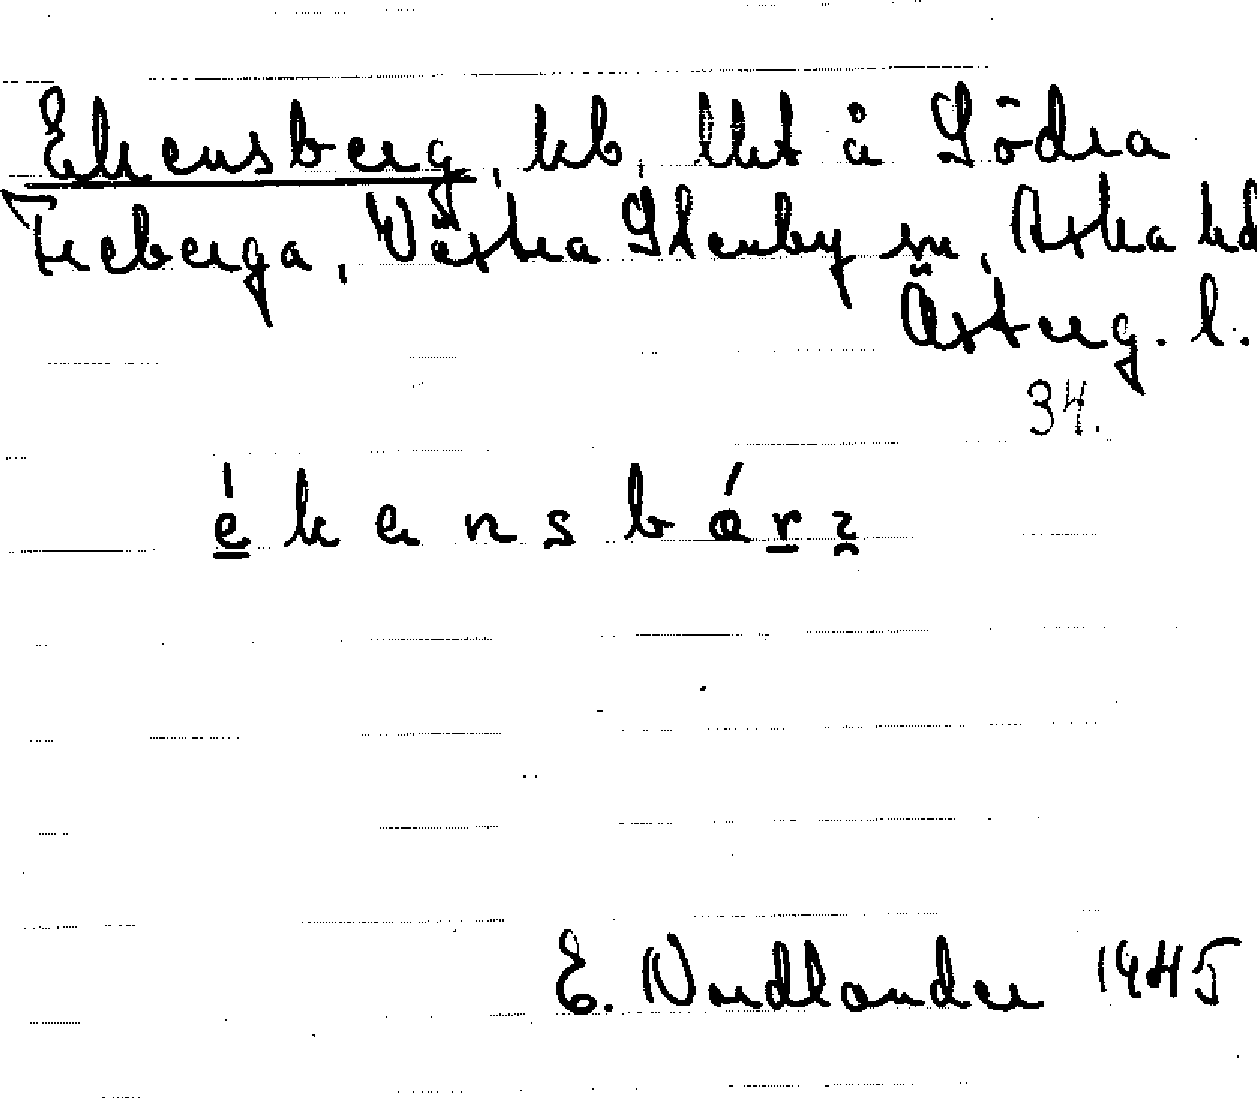 Ekensberg, hb, lht å Södra
Freberga, Västra Stenby sn, Aska hd
Österg. l.
34.
é k e n s b á r
E. Nordlander 1945